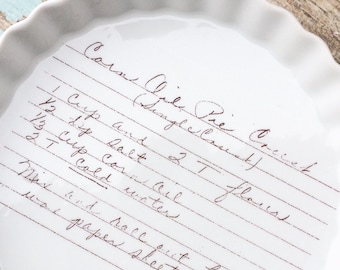 Corn Oil Pie Crust
(Single Crust)
1 Cup and 2 T flour
1/2 tsp salt
1/3 Cup Corn Oil
2 T Cold water
Mix and roll out
wax paper